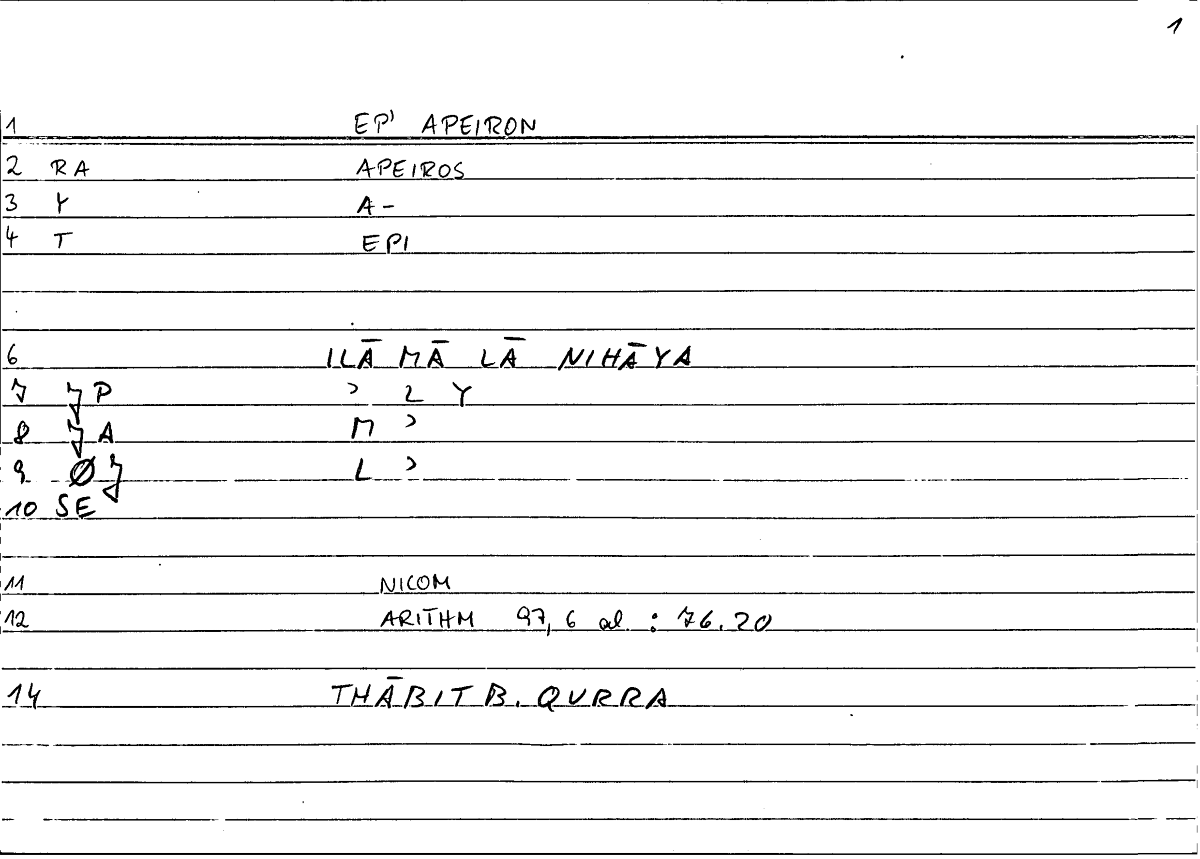 1
1 EP' APEIRON
2 RA APEIROS
3 Y A-
4 T EPI
6 ILĀ MĀ LĀ NIHĀYA
7 JP ʾ L Y
8 JA M ʾ
9 ØJ L ʾ
10 SE
11 NICOM
12 ARITHM 97,6 al : 76.20
14 THĀBIT B. QURRA